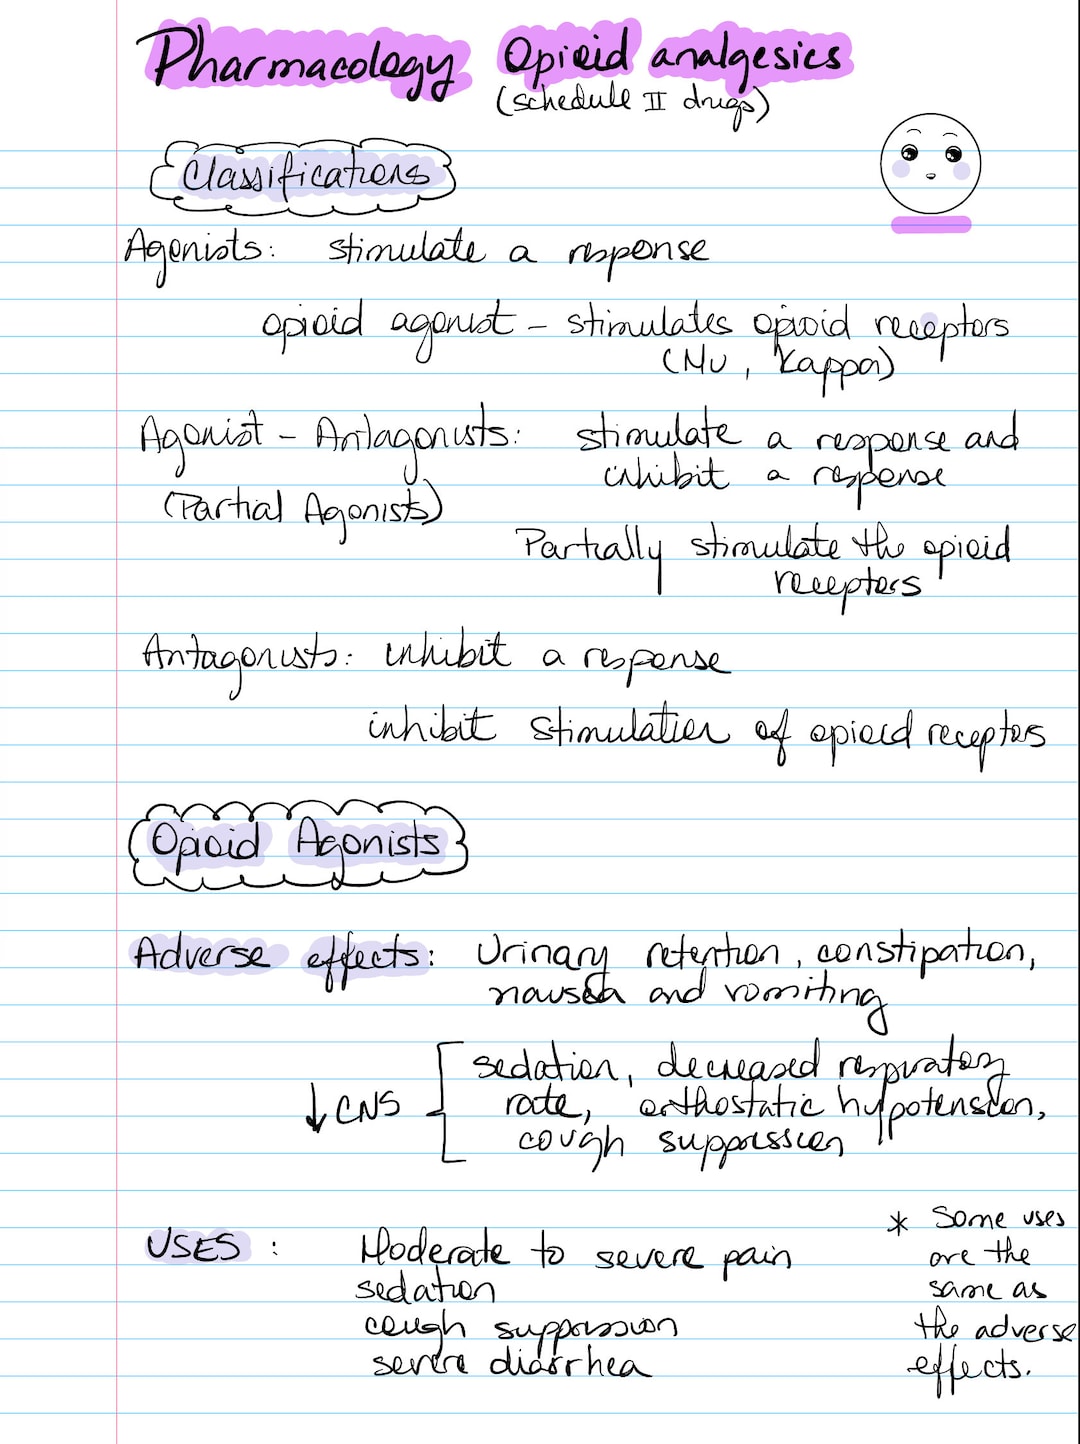 Pharmacology Opioid analgesics
(schedule II drugs)
Classifications
Agonists: stimulate a response
opioid agonist – stimulates opioid receptors
(Mu, Kappa)
Agonist – Antagonists: stimulate a response and
inhibit a response
(Partial Agonists)
Partially stimulate the opioid
receptors
Antagonists: inhibit a response
inhibit stimulation of opioid receptors
Opioid Agonists
Adverse effects: Urinary retention, constipation,
nausea and vomiting
sedation, decreased respiratory
↓ CNS rate, orthostatic hypotension,
cough suppression
USES : Moderate to severe pain
sedation
cough suppression
severe diarrhea
* Some uses
are the
same as
the adverse
effects.